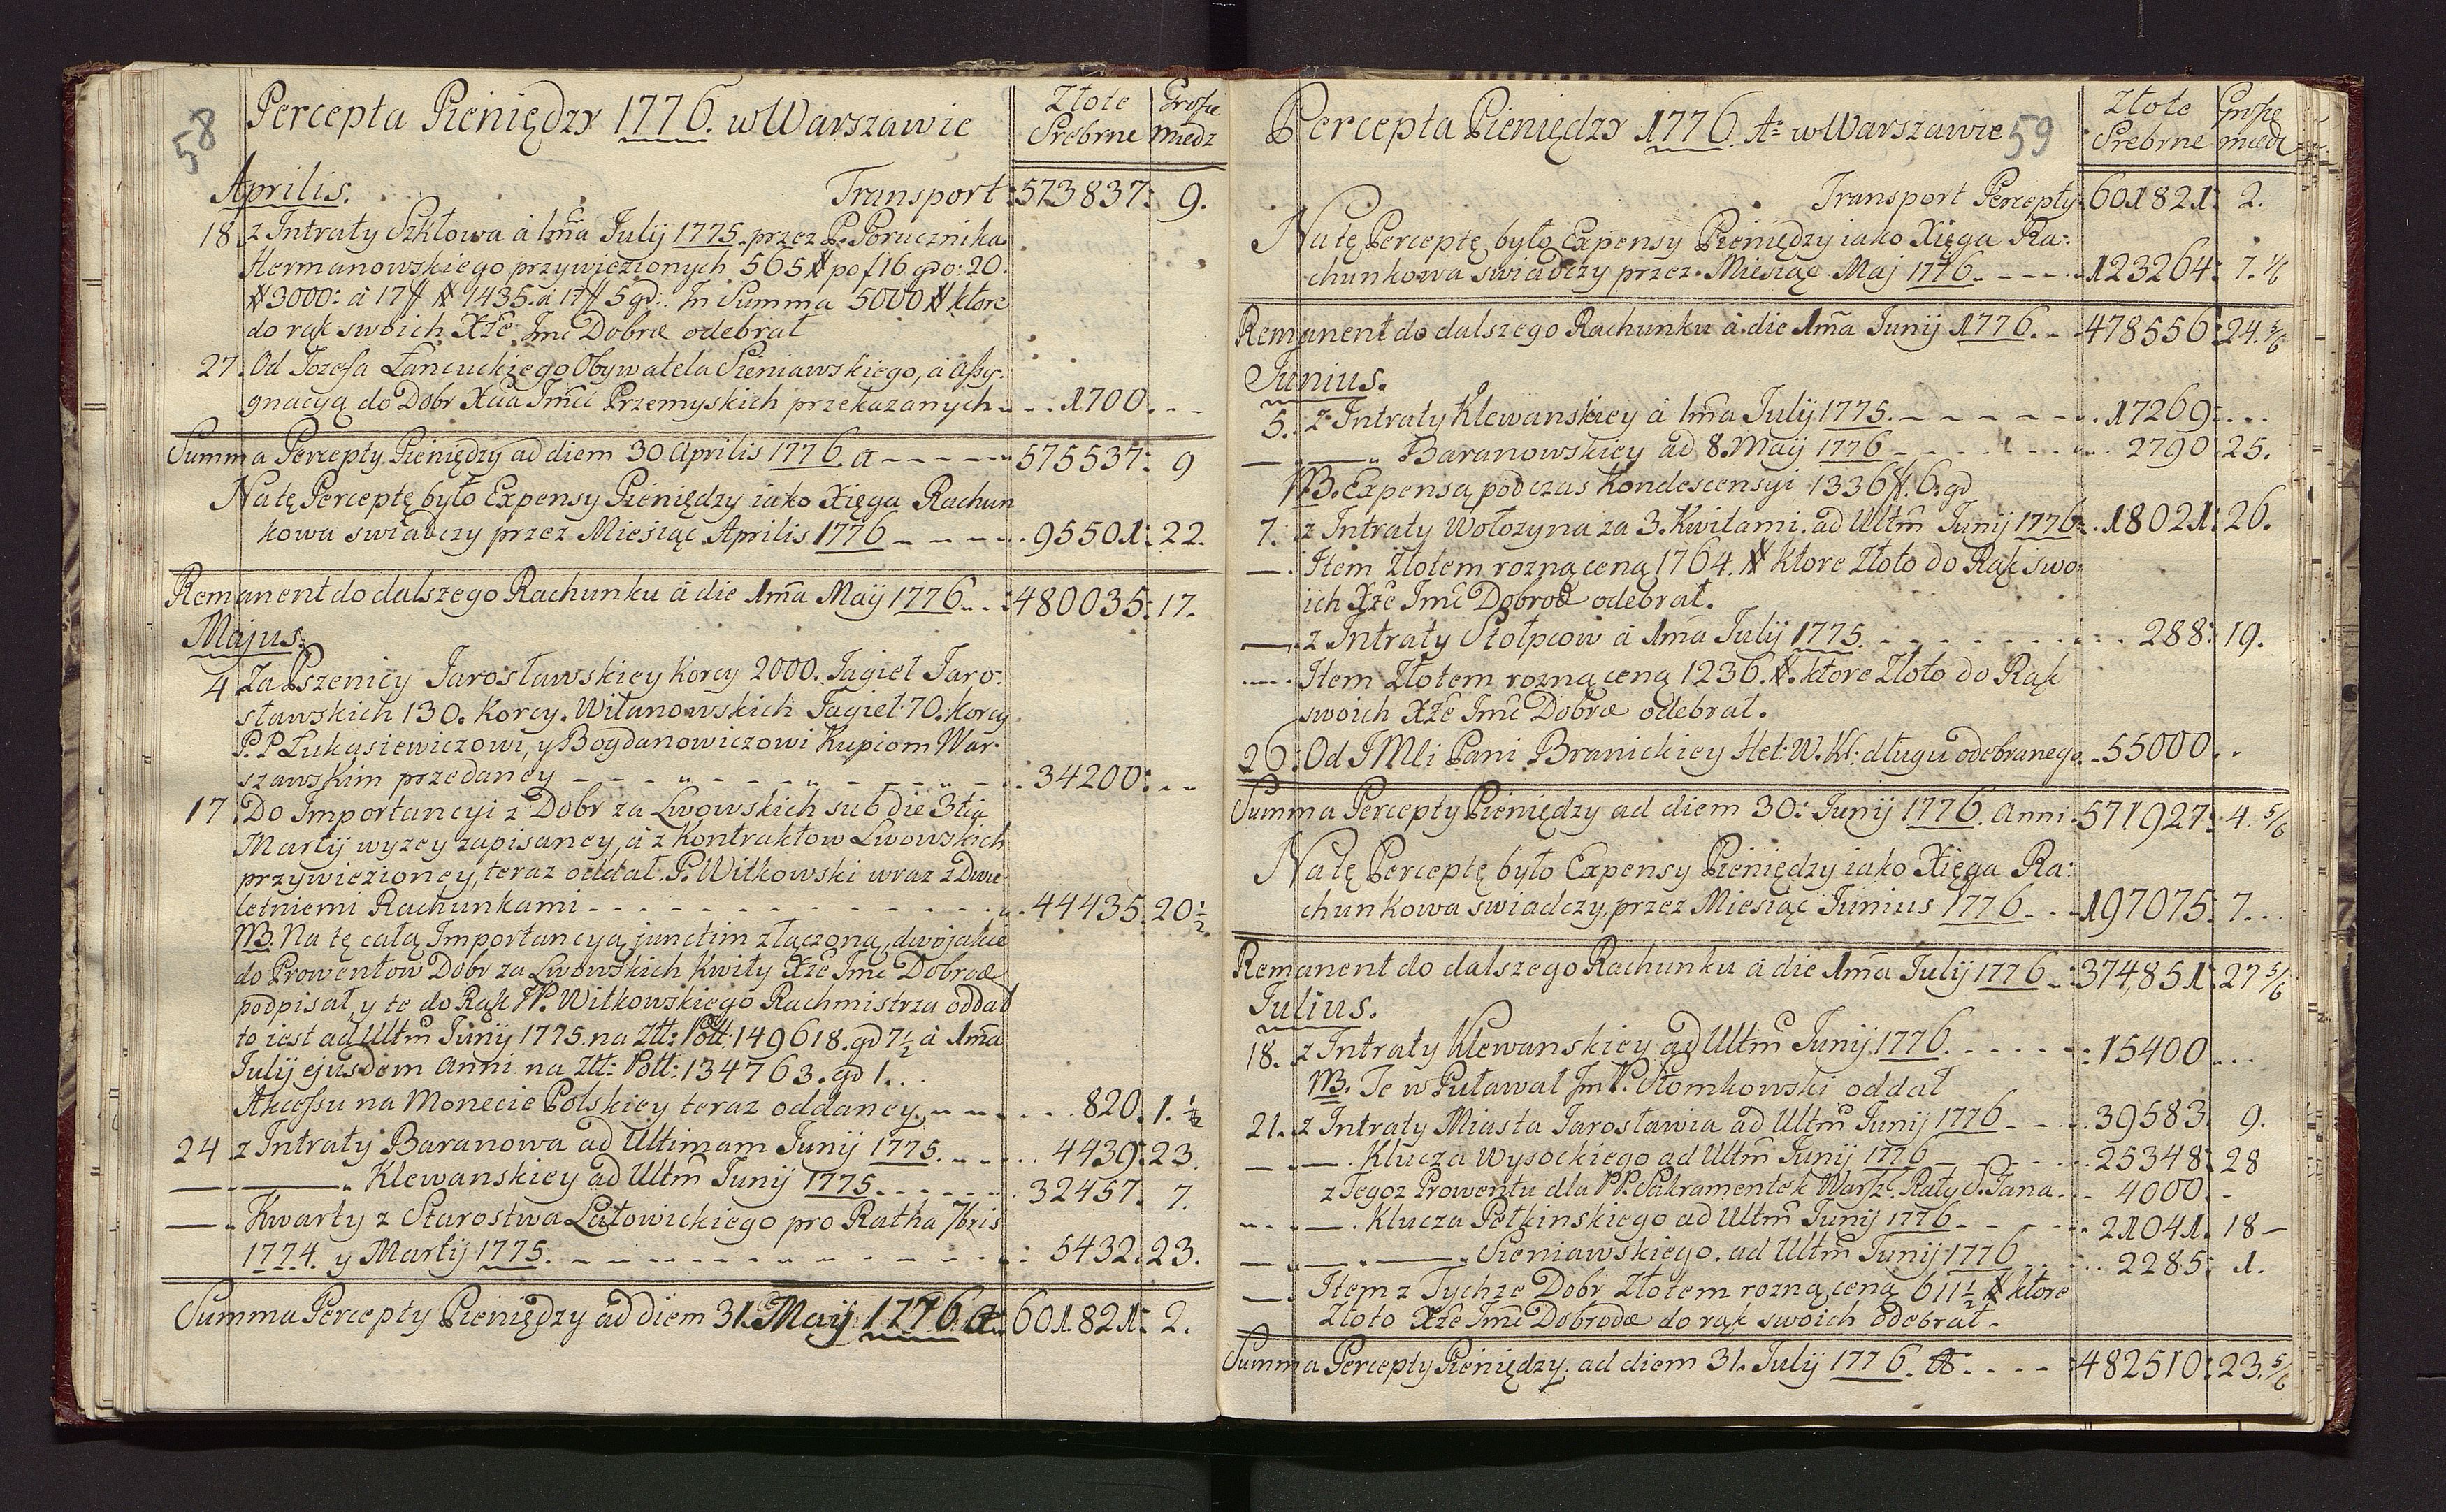 58
Percepta Pieniędzy 1776. w Warszawie
Złote Srebrne
Grosze miedz
Aprilis. Transport: 573837: 9.
18. z Intraty Szkłowa à 1ma Julij 1775. przez P. Porucznika
Hermanowskiego przywiezionych 565 # po f 16 gro: 20.
# 3000: à 17 ff # 1435. à 17 ff 5 gr. In Summa 5000 # ktore
do rąk swoich Xże Jmć Dobrœ odebrał
27. Od Jozefa Łancuckiego Obywatela Sieniawskiego, à Assy-
gnacyą do Dobr Xcia Jmći Przemyskich przekazanych 1700.
Summa Percepty Pieniędzy ad diem 30 Aprilis 1776 a 575537: 9
Na tę Perceptę było Expensy Pieniędzy iako Xięga Rachun
kowa swiadczy przez Miesiąc Aprilis 1776 95501: 22.
Remanent do dalszego Rachunku à die 1ma Maij 1776 480035: 17.
Majus.
4 Za Pszenicy Jarosławskiey Korcy 2000. Jagieł Jaro-
sławskich 130. Korcy. Wilanowskich Jagieł 70. korcy
P.P. Łukasiewiczowi, y Bogdanowiczowi Kupcom War-
szawskim przedaney 34200:
17. Do Importancyi z Dobr za Lwowskich sub die 3tia
Martij wyzey zapisaney, à z Kontraktow Lwowskich
przywiezioney, teraz oddał P. Witkowski wraz z Dwu-
letniemi Rachunkami 44435. 20 1/2
NB. Na tę całą Importancyą junctim złączoną, dwojakie
do Prowentow Dobr za Lwowskich Kwity Xże Jmć Dobrodœ
podpisał, y te do Rąk JP. Witkowskiego Rachmistrza oddał
to iest ad Ultm Junij 1775. na Ztt: Poll: 149618. gr 7 1/2 à 1ma
Julij ejusdem Anni na Ztt: Poll: 134763. gr 1.
Akcessu na Monecie Polskiey teraz oddaney 820. 1. 1/2
24 z Intraty Baranowa ad Ultimam Junij 1775. 4439. 23.
Klewanskiey ad Ultm Junij 1775. 32457. 7.
Kwarty z Starostwa Latowickiego pro Ratha 7bris
1774. y Martij 1775. 5432. 23.
Summa Percepty Pieniędzy ad diem 31. Maij 1776 A 601821: 2.
Percepta Pieniędzy 1776. Ao w Warszawie 59
Złote Srebrne
Grosze miedz
Transport Percepty 601821: 2.
Na tę Perceptę było Expensy Pieniędzy iako Xięga Ra:
chunkowa swiadczy przez Miesiąc Maj 1776. 123264: 7. 1/6
Remanent do dalszego Rachunku à die 1ma Junij 1776. 478556: 24. 5/6
Junius.
5. z Intraty Klewanskiey à 1ma Julij 1775. 17269:
Baranowskiey ad 8. Maij 1776 2790: 25.
NB. Expensa podczas Kondescensyi 1336 ff. 6. gr
7. z Intraty Wołozyna za 3. Kwitami, ad Ultm Junij 1776 18021: 26.
Item Złotem rozną ceną 1764. # ktore Złoto do Rąk swo
ich Xże Jmć Dobrodœ odebrał.
z Intraty Stołpcow à 1ma Julij 1775. 288: 19.
Item Złotem rozną ceną 1236. #. ktore Złoto do Rąk
swoich Xże Jmć Dobrœ odebrał.
26: Od JMci Pani Branickiey Het: W. K: długu odebranego 55000.
Summa Percepty Pieniędzy ad diem 30: Junij 1776. Anni 571927: 4. 5/6
Na tę Perceptę było Expensy Pieniędzy iako Xięga Ra:
chunkowa swiadczy, przez Miesiąc Junius 1776. 197075: 7.
Remanent do dalszego Rachunku à die 1ma Julij 1776 374,851: 27 5/6
Julius.
18. z Intraty Klewanskiey ad Ultm Junij 1776. 15400
NB. Te w Puławał JmP. Słomkowski oddał
21. z Intraty Miasta Jarosławia ad Ultm Junij 1776 39583. 9.
Klucza Wysockiego ad Ultm Junij 1776 25348: 28
z Tegoz Prowentu dla PP. Sakramentek Warsz. Raty S. Jana 4000.
Klucza Pełkinskiego ad Ultm Junij 1776 21041. 18
Sieniawskiego. ad Ultm Junij 1776 2285: 1.
Item z Tychze Dobr Złotem rozną ceną 611 1/2 # ktore
Złoto Xże Jmć Dobrodœ do rąk swoich odebrał.
Summa Percepty Pieniędzy, ad diem 31. Julij 1776. A 482510: 23. 5/6